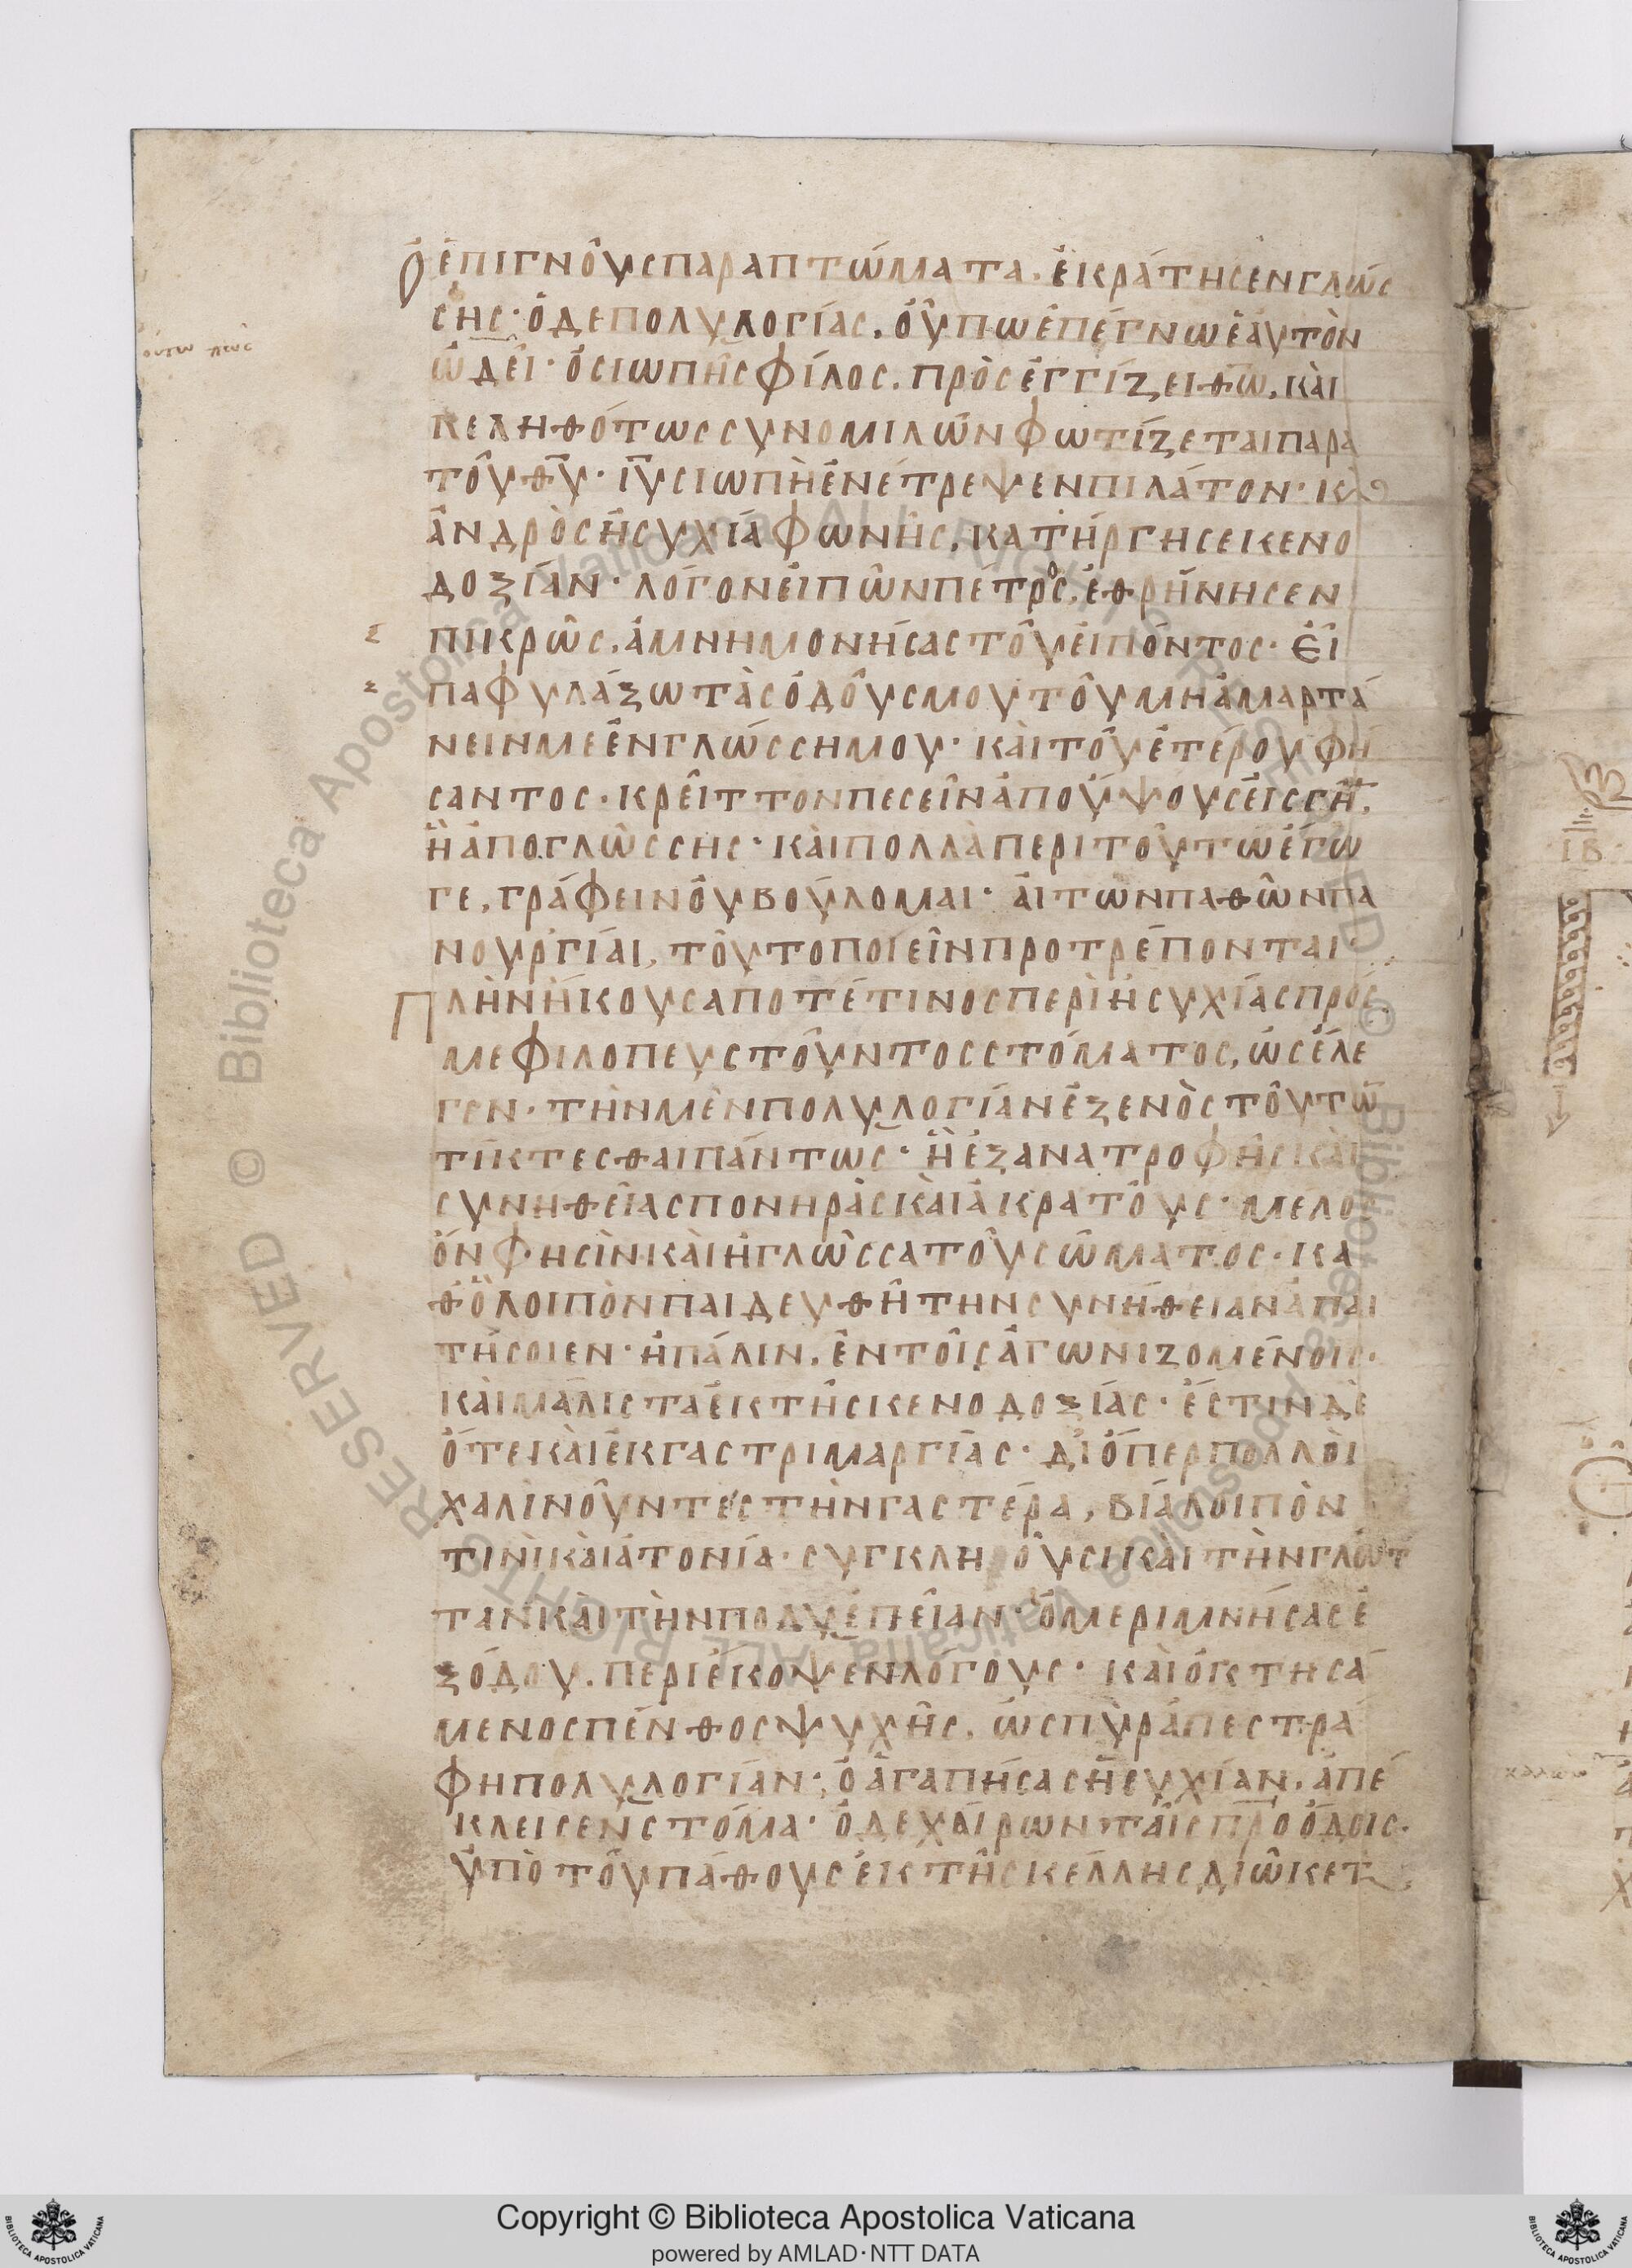 Ὁ ἐπιγνοὺς παραπτώματα. ἐκράτησεν γλώς
σης· ὁ δὲ πολυλογίας, οὔπω ἐπέγνω ἑαυτὸν
οὕτω πως
ὡ δεῖ· ὁ σιωπῆς φίλος. προσεγγίζει θω, καὶ
κεληθότως συνομιλῶν φωτίζεται παρα
τοῦ θυ· ιυ σιωπὴ ἐνέτρεψεν πιλάτον· κ
ἀνδρὸς ἡσυχία φωνῆς, κατήργησε κενο
δοξίαν· λόγον εἰπὼν πέτρος, ἐθρήνησεν
πικρῶς, ἀμνημονήσας τοῦ εἰπόντος· εἶ
πα φυλάξω τὰς ὁδούς μου τοῦ μὴ ἁμαρτά
νειν με ἐν γλώσσῃ μου· καὶ τοῦ ἑτέρου φή
σαντος· κρεῖττον πεσεῖν ἀπὸ ὕψους εἰς γῆ,
ἢ ἀπὸ γλώσσης· καὶ πολλὰ περὶ τούτω ἔγω
γε, γράφειν οὐ βούλομαι· αἱ τῶν παθῶν πα
νουργίαι, τοῦτο ποιεῖν προτρέπονται·
Πλὴν ἤκουσα ποτέ τινος περὶ ἡσυχίας πρός
με φιλοπευστοῦντος στόματος, ὡς ἔλε
γεν· τὴν μὲν πολυλογίαν ἐξ ἑνὸς τούτω
τίκτεσθαι πάντως· ἢ ἐξ ἀνατροφῆς καὶ
συνηθείας πονηρᾶς καὶ ἀκρατοῦς· μέλος
ὄν φησὶν καὶ ἡ γλῶσσα τοῦ σώματος· κα
θὸ λοιπὸν παιδευθῇ τὴν συνήθειαν ἀπαι
τήσοιεν· ἢ πάλιν, ἐν τοῖς ἀγωνιζομένοις·
καὶ μάλιστα ἐκ τῆς κενοδοξίας· ἔστιν δὲ
ὅτε καὶ ἐκ γαστριμαργίας· διόπερ πολλοὶ
χαλινοῦντες τὴν γαστέρα, βία λοιπὸν
τινὶ καὶ ἀτονία· συγκληροῦσι καὶ τὴν γλῶτ
ταν καὶ τὴν πολυέπειαν· ὁ μεριμνήσας ἐ
ξόδου. περιέκοψεν λόγους· καὶ ὁ κτησά
μενος πένθος ψυχῆς, ὡς πῦρ ἀπεστρά
φη πολυλογίαν· ὁ ἀγαπήσας ἡσυχίαν, ἀπέ
κλεισεν στόμα· ὁ δὲ χαίρων ταῖς προόδοις.
ὑπὸ τοῦ πάθους ἐκ τῆς κέλλης διώκετ